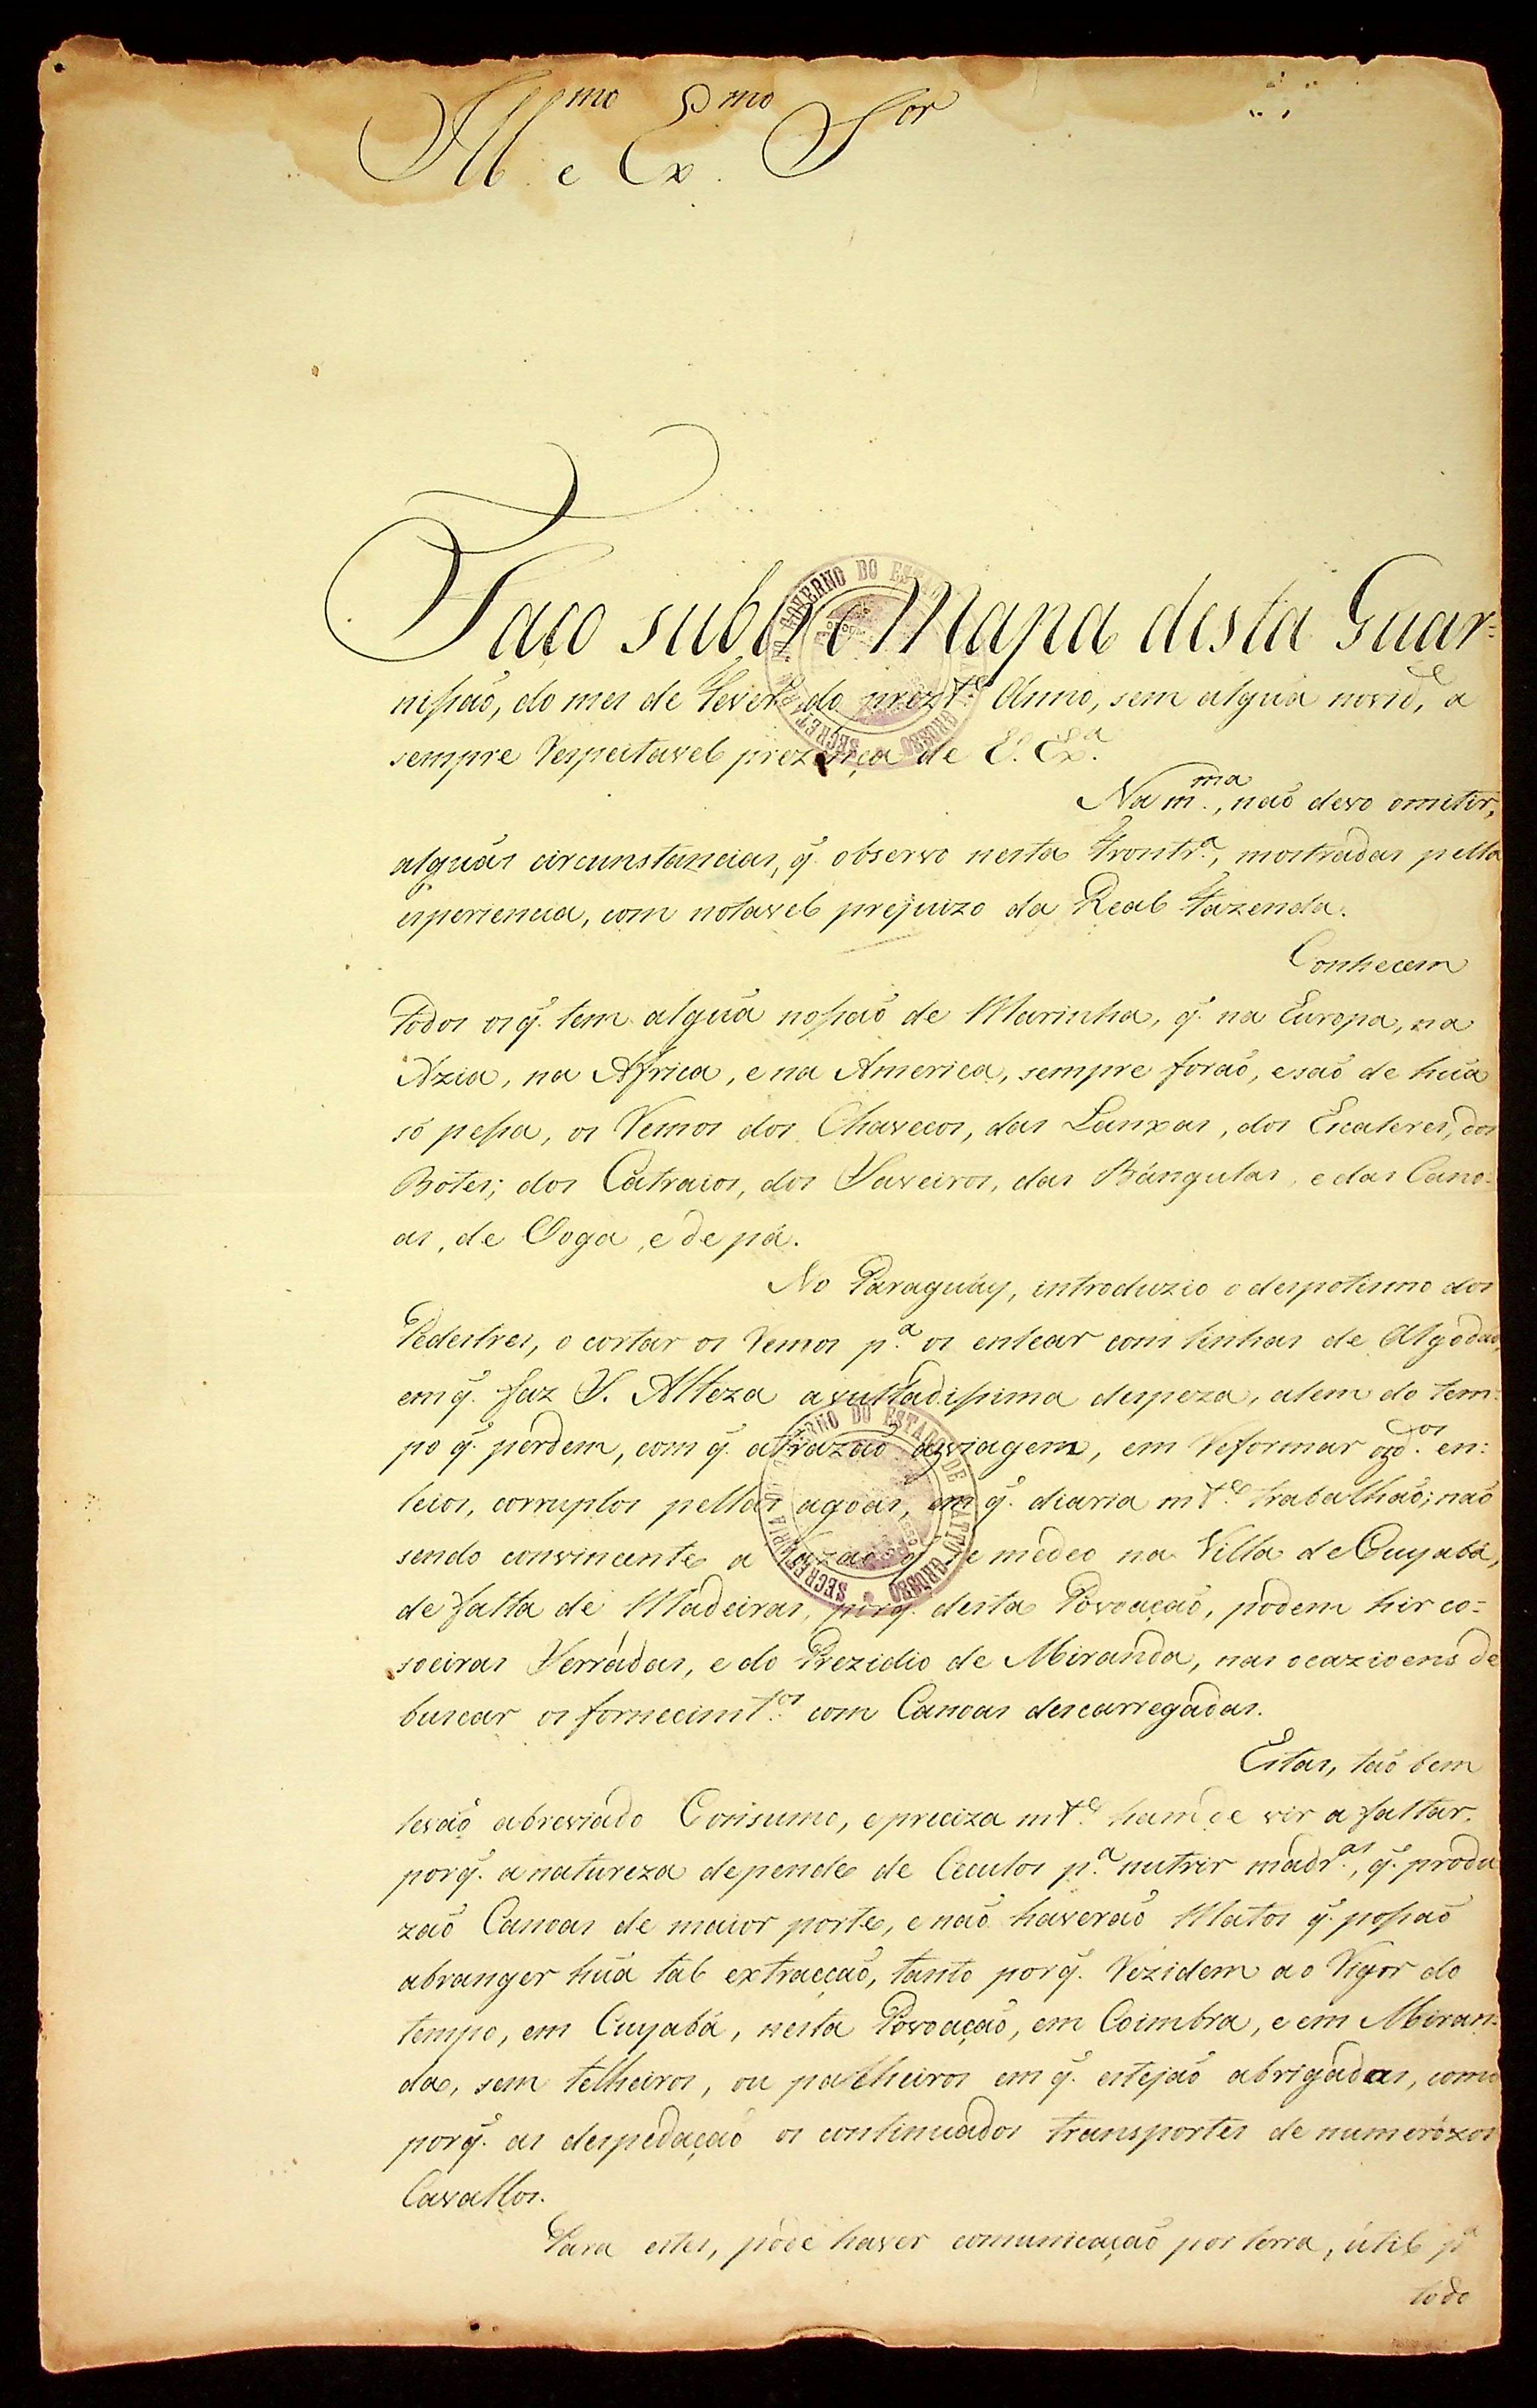 Ill.mo e Ex.mo S.or
Faço subir o Mapa desta Guar=
nisaõ, do mes de Fever.o do prezt.e Anno, sem algũa novid.e, a
sempre Respeitavel prezença de V. Ex.a
Na m.ma, naõ devo omitir,
alguãs circunstancias, q̃. observo nesta Frontr.a, mostradas pella
esperiencia, com notavel prejuizo da Real Fazenda.
Conhecem
todos os q̃. tem algũa nossaõ de Marinha, q̃. na Europa, na
Azia, na Africa, e na America, sempre foraõ, e saõ de huã
só pessa, os Remos dos Chavecos, das Lanxas, dos Escaleres, dos
Botes; dos Catraios, dos Saveiros, das Bángulas, e das Cano=
as, de Voga, e de pá.
No Paraguáy, introduzio o despotismo dos
Pedestres, o cortar os Remos p.a os enlear com linhas de Algodaõ,
em q̃. faz S. Alteza avultadissima despeza, alem do tem=
po q̃. perdem, com q̃. atrazaõ a viagem, em Reformar os d.os en=
leios, corruptos pellas agoas, em q̃. diaria mt.e trabalhaõ; naõ
sendo convincente a Razaõ q̃. se me deo na Villa de Cuyabá,
de falta de Madeiras, porq̃. desta Povoaçaõ, podem hir co=
soeiras Serrádas, e do Prezidio de Miranda, nas ocazioens de
buscar os fornecimt.os com Canoas descarregadas.
Estas, taõ bem
levaõ abreviado Consumo, e preciza mt.e ham de vir a faltar.
porq̃. a natureza depende de Ceculos p.a nutrir madr.as, q̃. produ
zaõ Canoas de maior porte, e naõ haveraõ Matos q̃. possaõ
abranger huã tal extracçaõ, tanto porq̃. Rezidem ao Rigor do
tempo, em Cuyabá, nesta Povoaçaõ, em Coimbra, e em Miran=
da, sem telheiros, ou palheiros em q̃. estejaõ abrigadas, como
porq̃. as despedaçaõ os continuados transportes de numerózos
Cavallos.
Para estes, póde haver comunicaçaõ por terra, útil p.a
todo
SECRETARIA DO GOVERNO DO ESTADO DE MATTO GROSSO
SECRETARIA DO GOVERNO DO ESTADO DE MATTO GROSSO